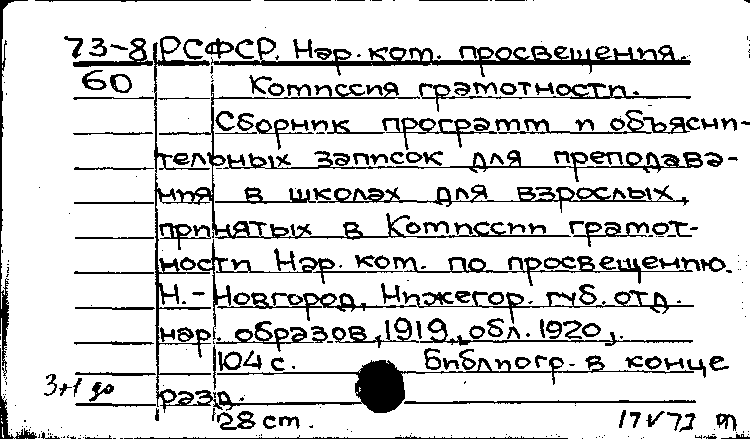 73-8 РСФСР. Нар. ком. просвещения.
60 Комиссия грамотности.
Сборник программ и объясни-
тельных записок для преподава-
ния в школах для взрослых,
принятых в Комиссии грамот-
ности Нар. ком. по просвещению.
Н.-Новгород, Нижегор. губ. отд.
нар. образов., 1919, „обл. 1920„.
104 с. Библиогр. в конце
3+1 до разд.
28 см. 17 V 73